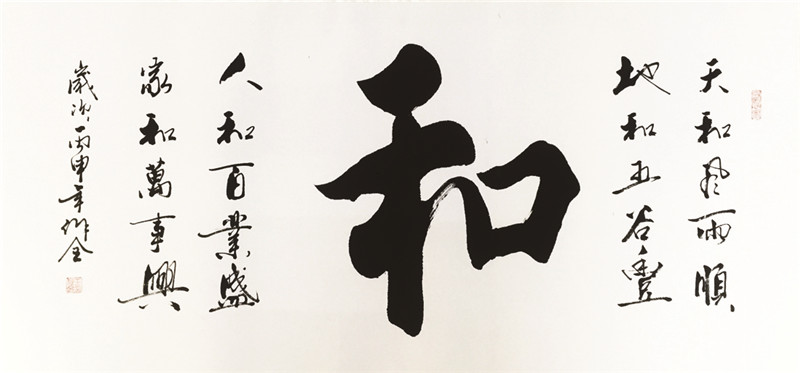 天和風雨順
地和五谷豐
和
人和百業盛
家和萬事興
歲次丙申年作全